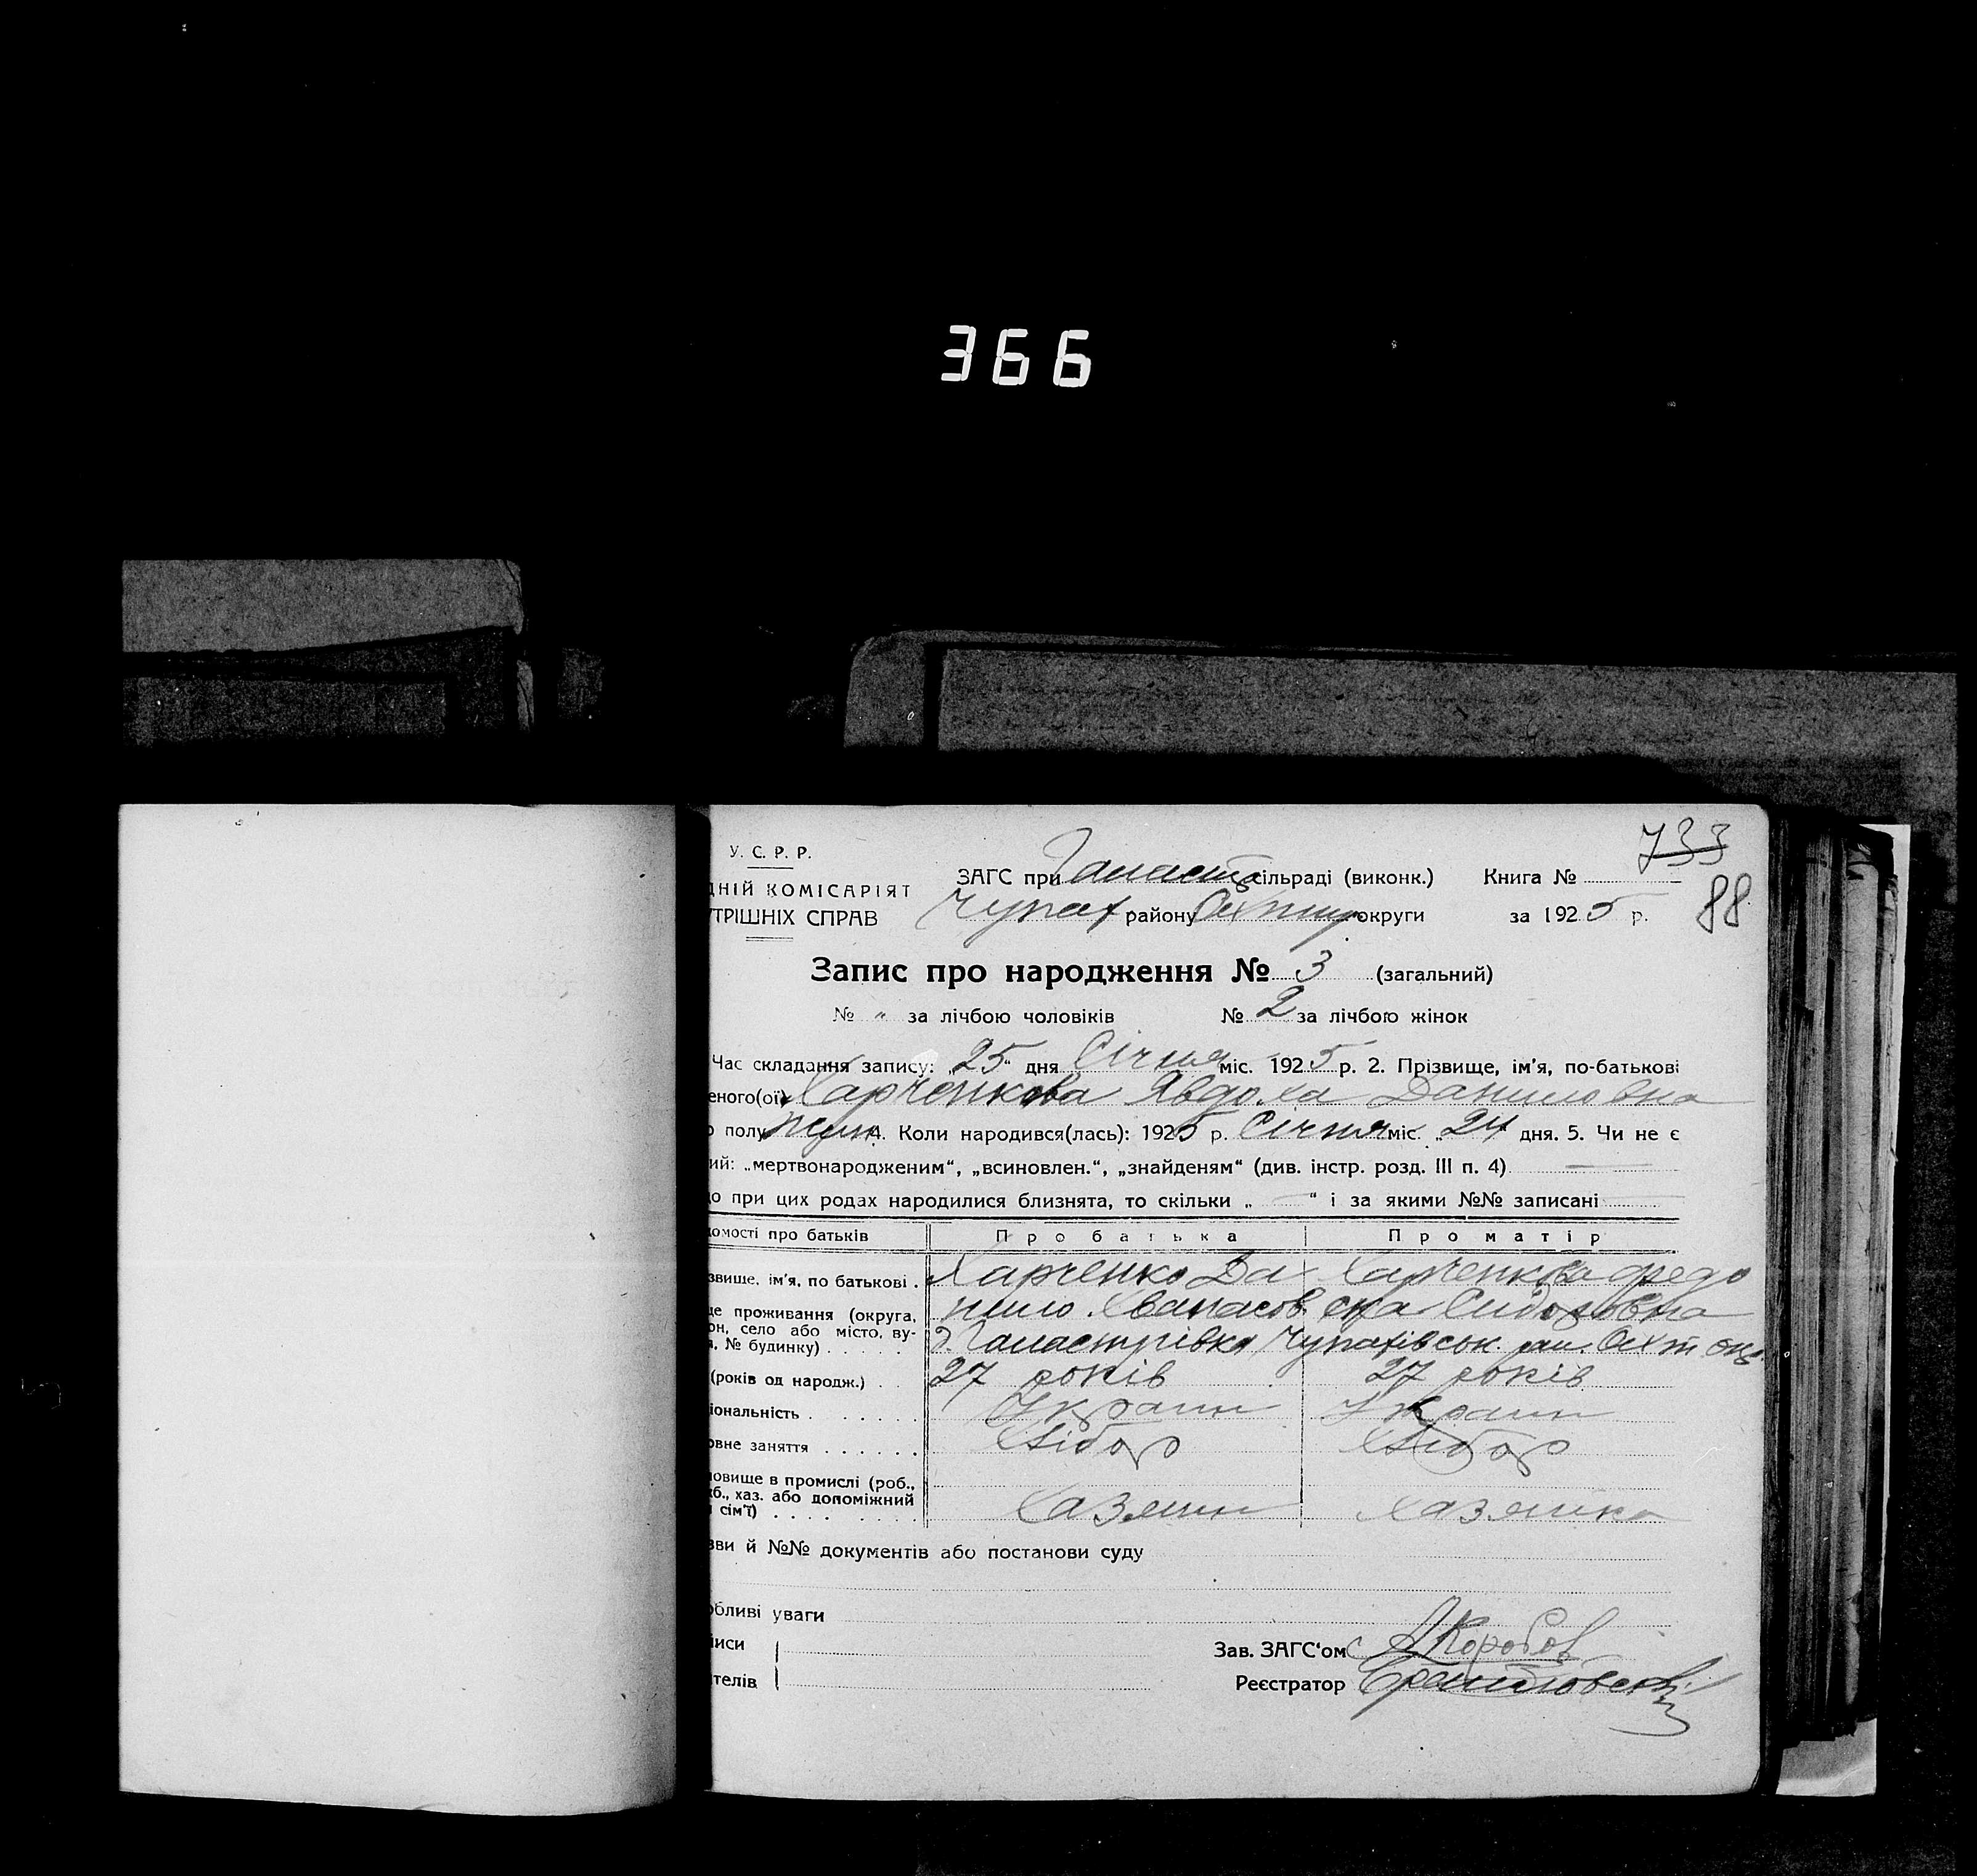 366
733
88
У. С. Р. Р.
ДНІЙ КОМІСАРІЯТ
ТРІШНІХ СПРАВ
ЗАГС при сільраді (виконк.) Книга №
Чупах району Охтир округи за 1925 р.
Запис про народження № 3 (загальний)
№ " за лічбою чоловіків № 2 за лічбою жінок
Час складання запису: „25“ дня Січня міс. 1925 р. 2. Прізвище, ім'я, по-батькові
еного(ої) Харченкова Явдоха Даниловна
полу жін 4. Коли народився(лась): 1925 р. Січня міс. „24 дня. 5. Чи не є
ий: „мертвонародженим“, „всиновлен.“, „знайденям“ (див. інстр. розд. III п. 4)
о при цих родах народилися близнята, то скільки „ “ і за якими №№ записані
домості про батьків Про батька Про матір
звище, ім'я, по батькові . Харченко Да Харченкова Федо
нило Сидоровна
це проживання (округа,
он, село або місто, ву-
, № будинку) . . . . . Чупахівськ. рай. Охт окр.
(років од народж.) . . 27 років 27 років
іональність . . . . . . . Украин Украин
овне заняття . . . . . . Хлібор Хлібор
новище в промислі (роб.,
жб., хаз. або допоміжний
сім'ї) . . . . . . . . Хазяин Хазяика
зви й №№ документів або постанови суду
обливі уваги
иси
телів
Зав. ЗАГС'ом Коробов
Реєстратор